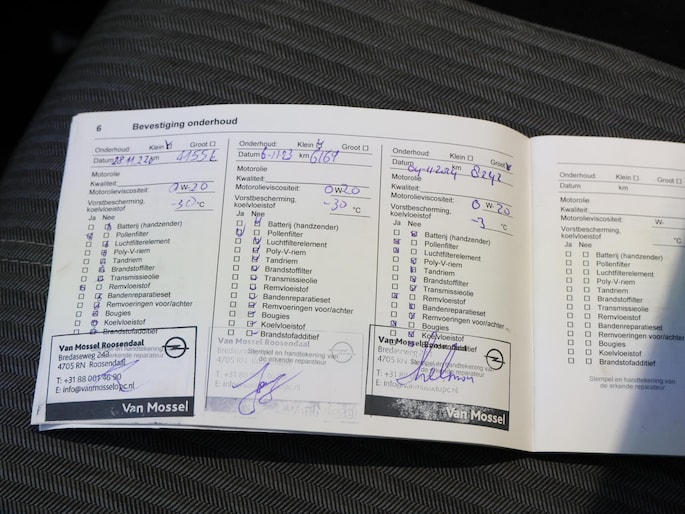 6 Bevestiging onderhoud
Onderhoud: Klein Groot
Datum 28.11.22 km
Motorolie
Kwaliteit:
Motorolieviscositeit: 0 W-20
Vorstbescherming,
koelvloeistof -30 °C
Ja Nee
Batterij (handzender)
Pollenfilter
Luchtfilterelement
Poly-V-riem
Tandriem
Brandstoffilter
Transmissieolie
Remvloeistof
Bandenreparatieset
Remvoeringen voor/achter
Bougies
Koelvloeistof
Brandstofadditief
Van Mossel Roosendaal
Bredaseweg 243
4705 RN Roosendaal
T: +31 88 001 46 90
E: info@vanmosselopc.nl
Van Mossel
Onderhoud: Klein Groot
Datum 6-11-23 km 6161
Motorolie
Kwaliteit:
Motorolieviscositeit: 0 W-20
Vorstbescherming,
koelvloeistof -30 °C
Ja Nee
Batterij (handzender)
Pollenfilter
Luchtfilterelement
Poly-V-riem
Tandriem
Brandstoffilter
Transmissieolie
Remvloeistof
Bandenreparatieset
Remvoeringen voor/achter
Bougies
Koelvloeistof
Brandstofadditief
Van Mossel Roosendaal
Stempel en handtekening van
de erkende reparateur
Onderhoud: Klein Groot
Datum 04-11-2024 km 8242
Motorolie
Kwaliteit:
Motorolieviscositeit: 0 W-20
Vorstbescherming,
koelvloeistof -3 °C
Ja Nee
Batterij (handzender)
Pollenfilter
Luchtfilterelement
Poly-V-riem
Tandriem
Brandstoffilter
Transmissieolie
Remvloeistof
Bandenreparatieset
Remvoeringen voor/achter
Bougies
Koelvloeistof
Van Mossel
Bredaseweg
4705 RN
T: +31 88
Van Mossel
Onderhoud: Klein Groot
Datum km
Motorolie
Kwaliteit:
Motorolieviscositeit: W-
Vorstbescherming,
koelvloeistof °C
Ja Nee
Batterij (handzender)
Pollenfilter
Luchtfilterelement
Poly-V-riem
Tandriem
Brandstoffilter
Transmissieolie
Remvloeistof
Bandenreparatieset
Remvoeringen voor/achter
Bougies
Koelvloeistof
Brandstofadditief
Stempel en handtekening van
de erkende reparateur